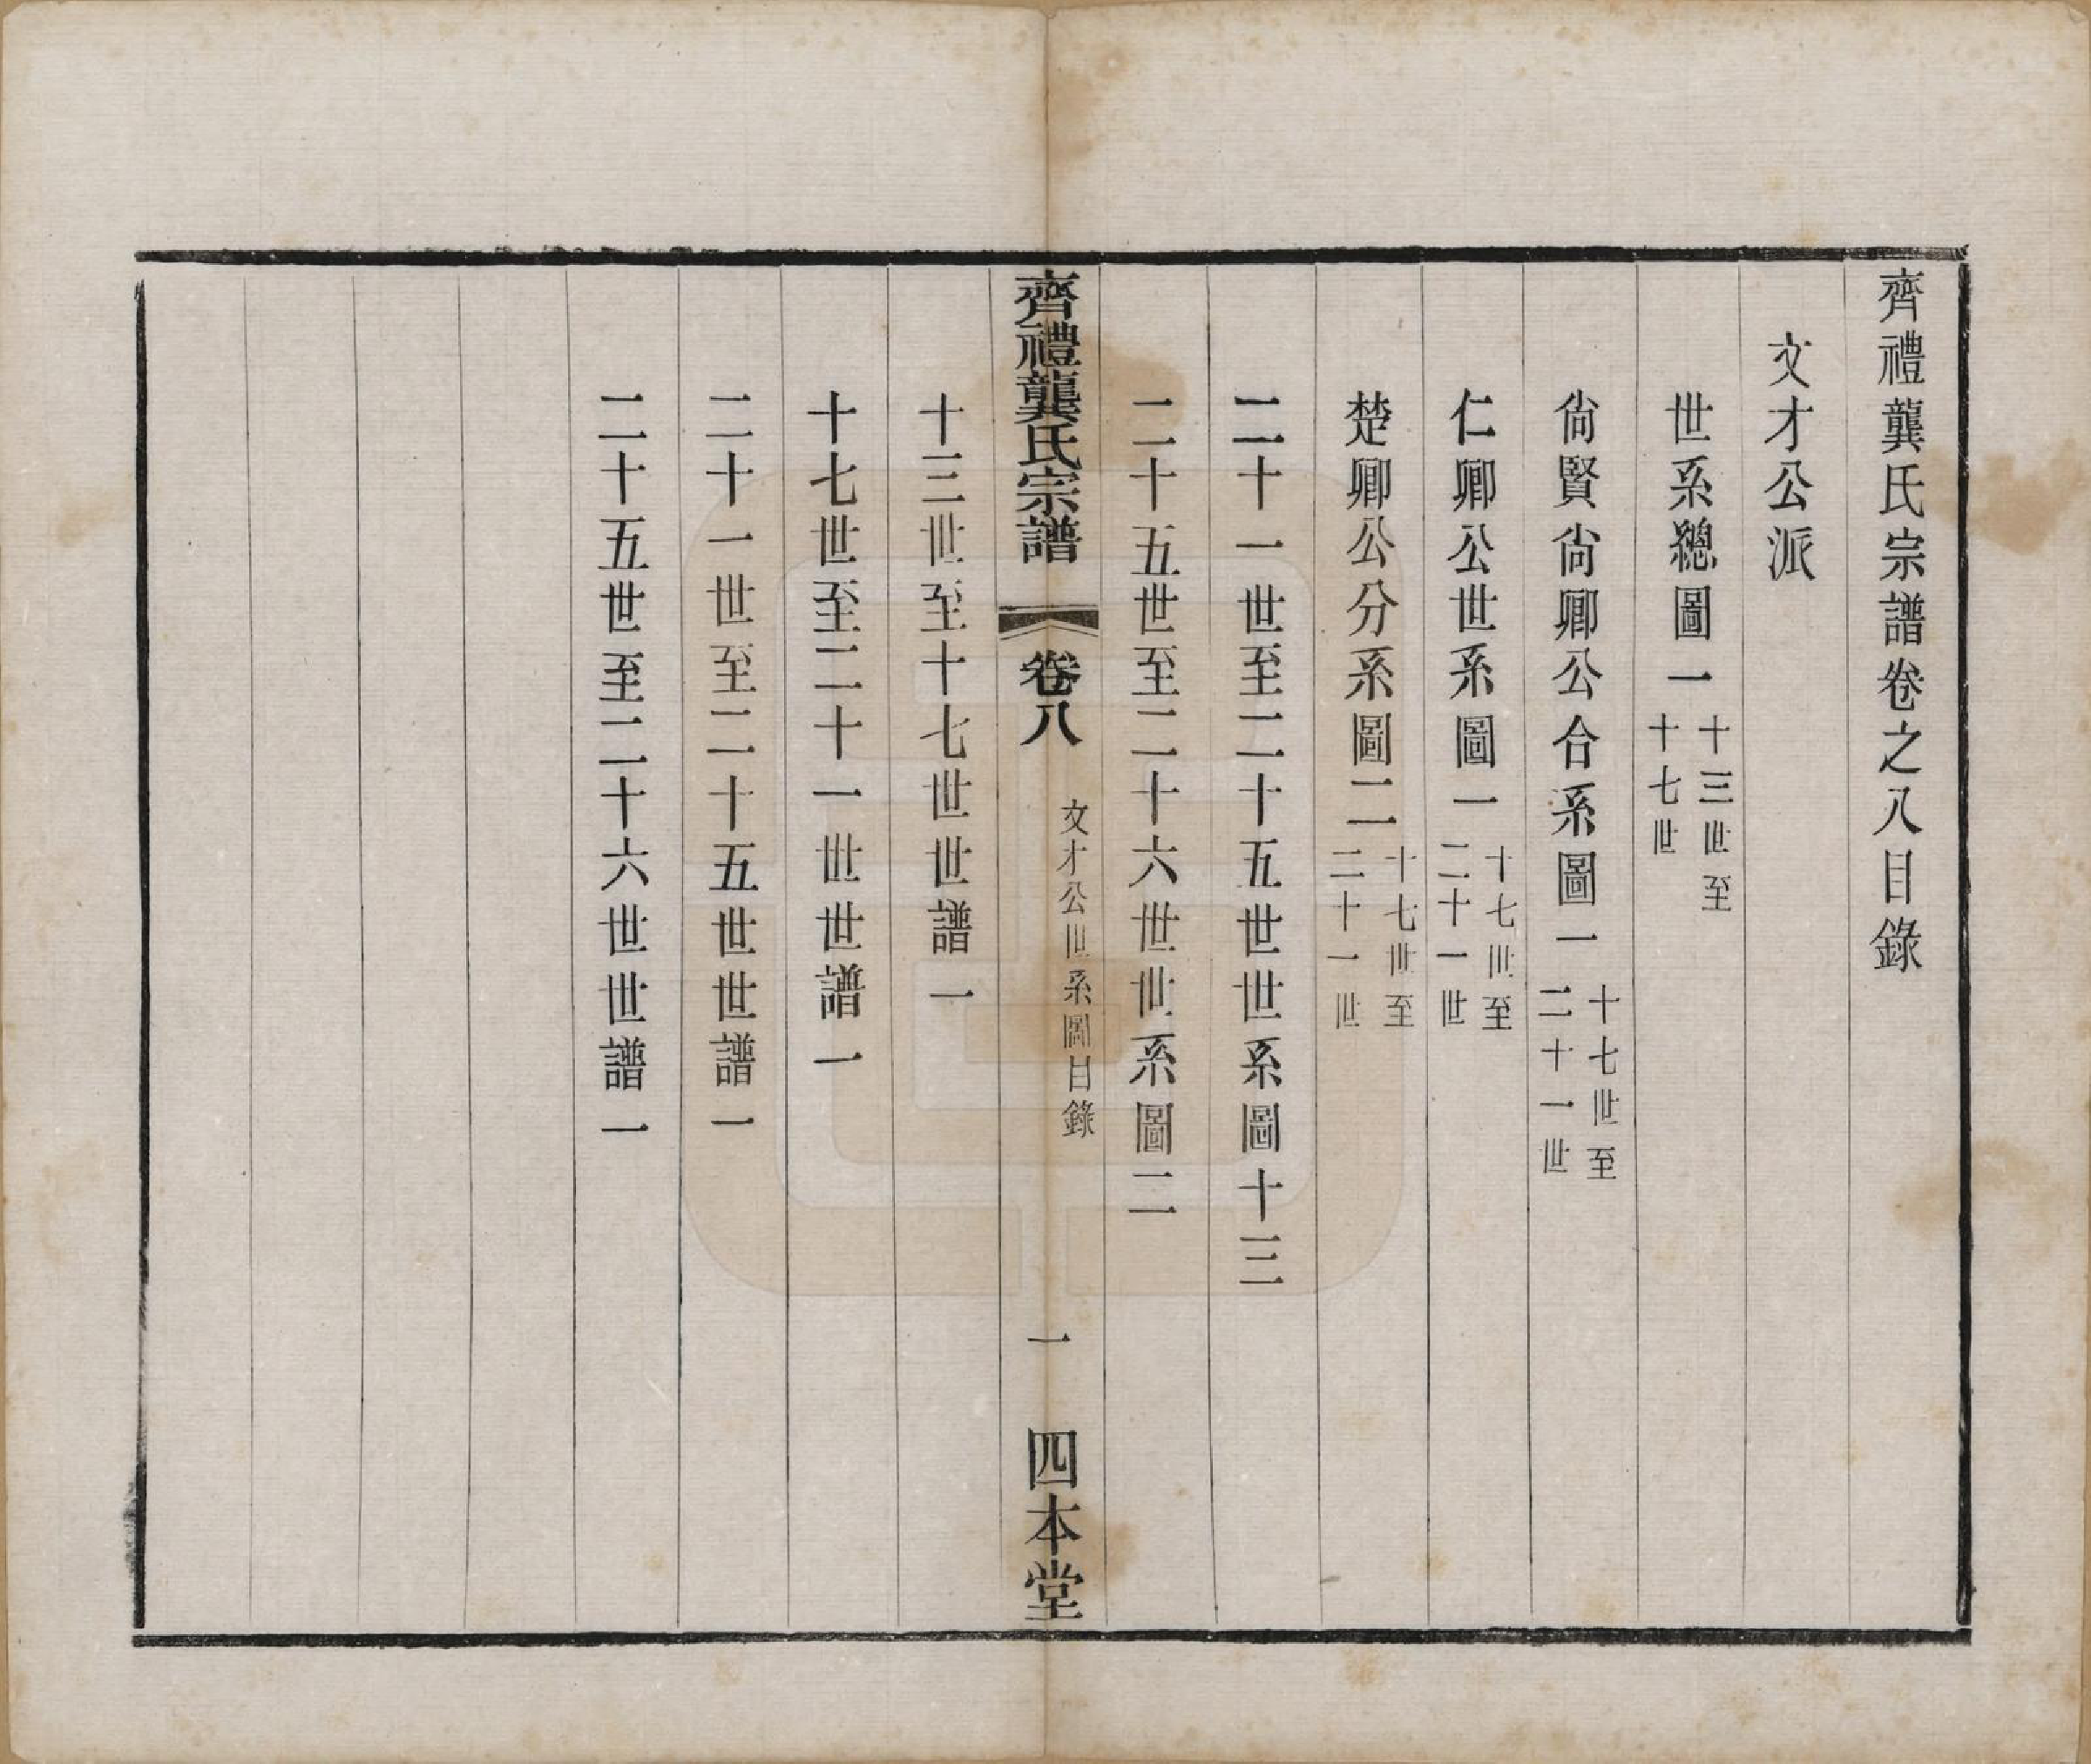 齊禮龔氏宗譜卷之八目錄
文才公派
世系總圖一十三世至十七世
尙賢尙卿公合系圖一十七世至二十一世
仁卿公世系圖一十七世至二十一世
楚卿公分系圖二十七世至二十一世
二十一世至二十五世世系圖十三
二十五世至二十六世世系圖二
齊禮龔氏宗譜 卷八 文才公世系圖目錄 一 四本堂
十三世至十七世世譜一
十七世至二十一世世譜一
二十一世至二十五世世譜一
二十五世至二十六世世譜一